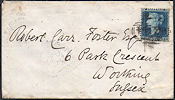 Robert Carr Foster Esq
6 Park Crescent
Worthing
Sussex